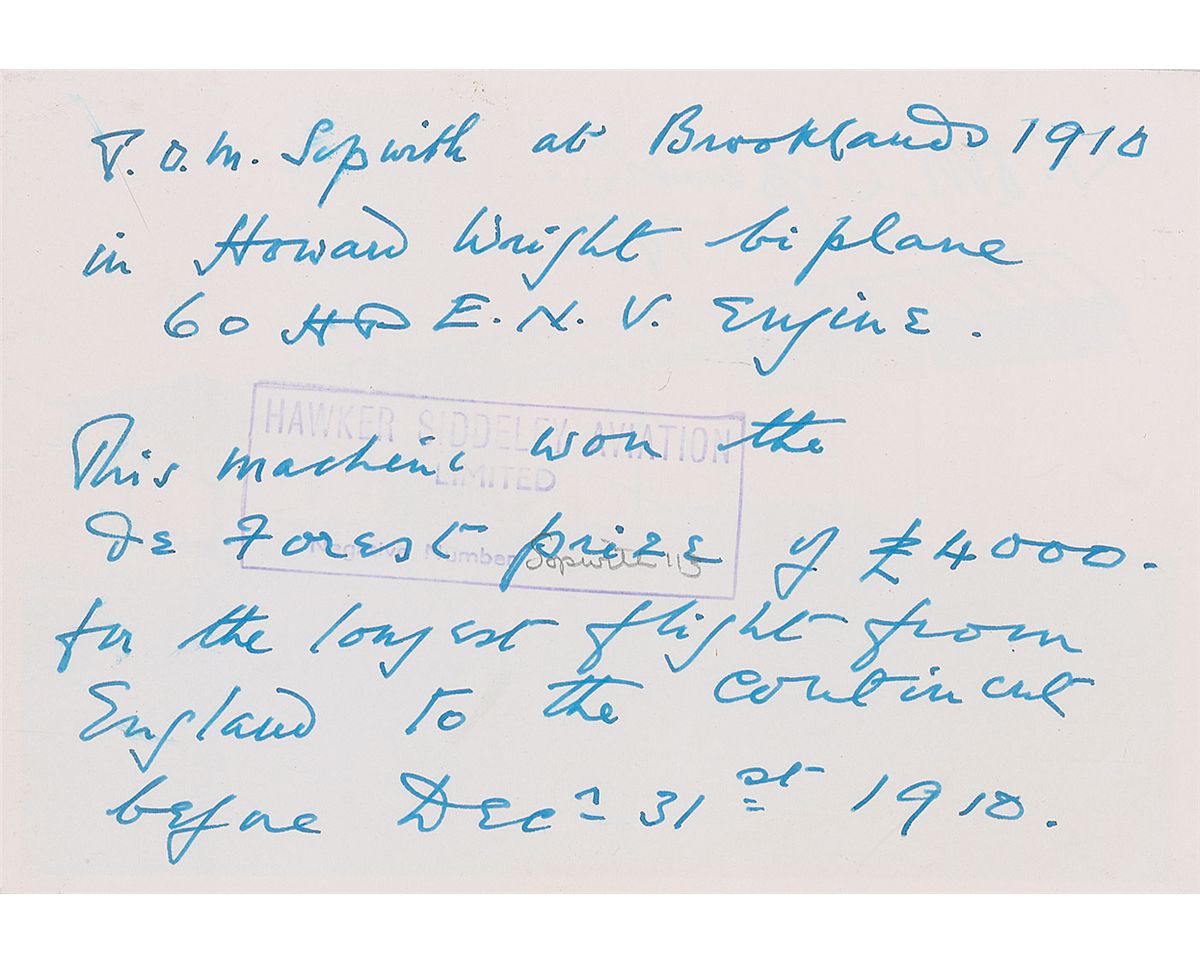 T.O.M. Sopwith at Brooklands 1910
in Howard Wright biplane
60 HP E.N.V. Engine.
HAWKER SIDDELEY AVIATION
LIMITED
Negative Number Sopwith 115
This machine won the
De Forest prize of £4000.
for the longest flight from
England to the continent
before Decr 31st 1910.